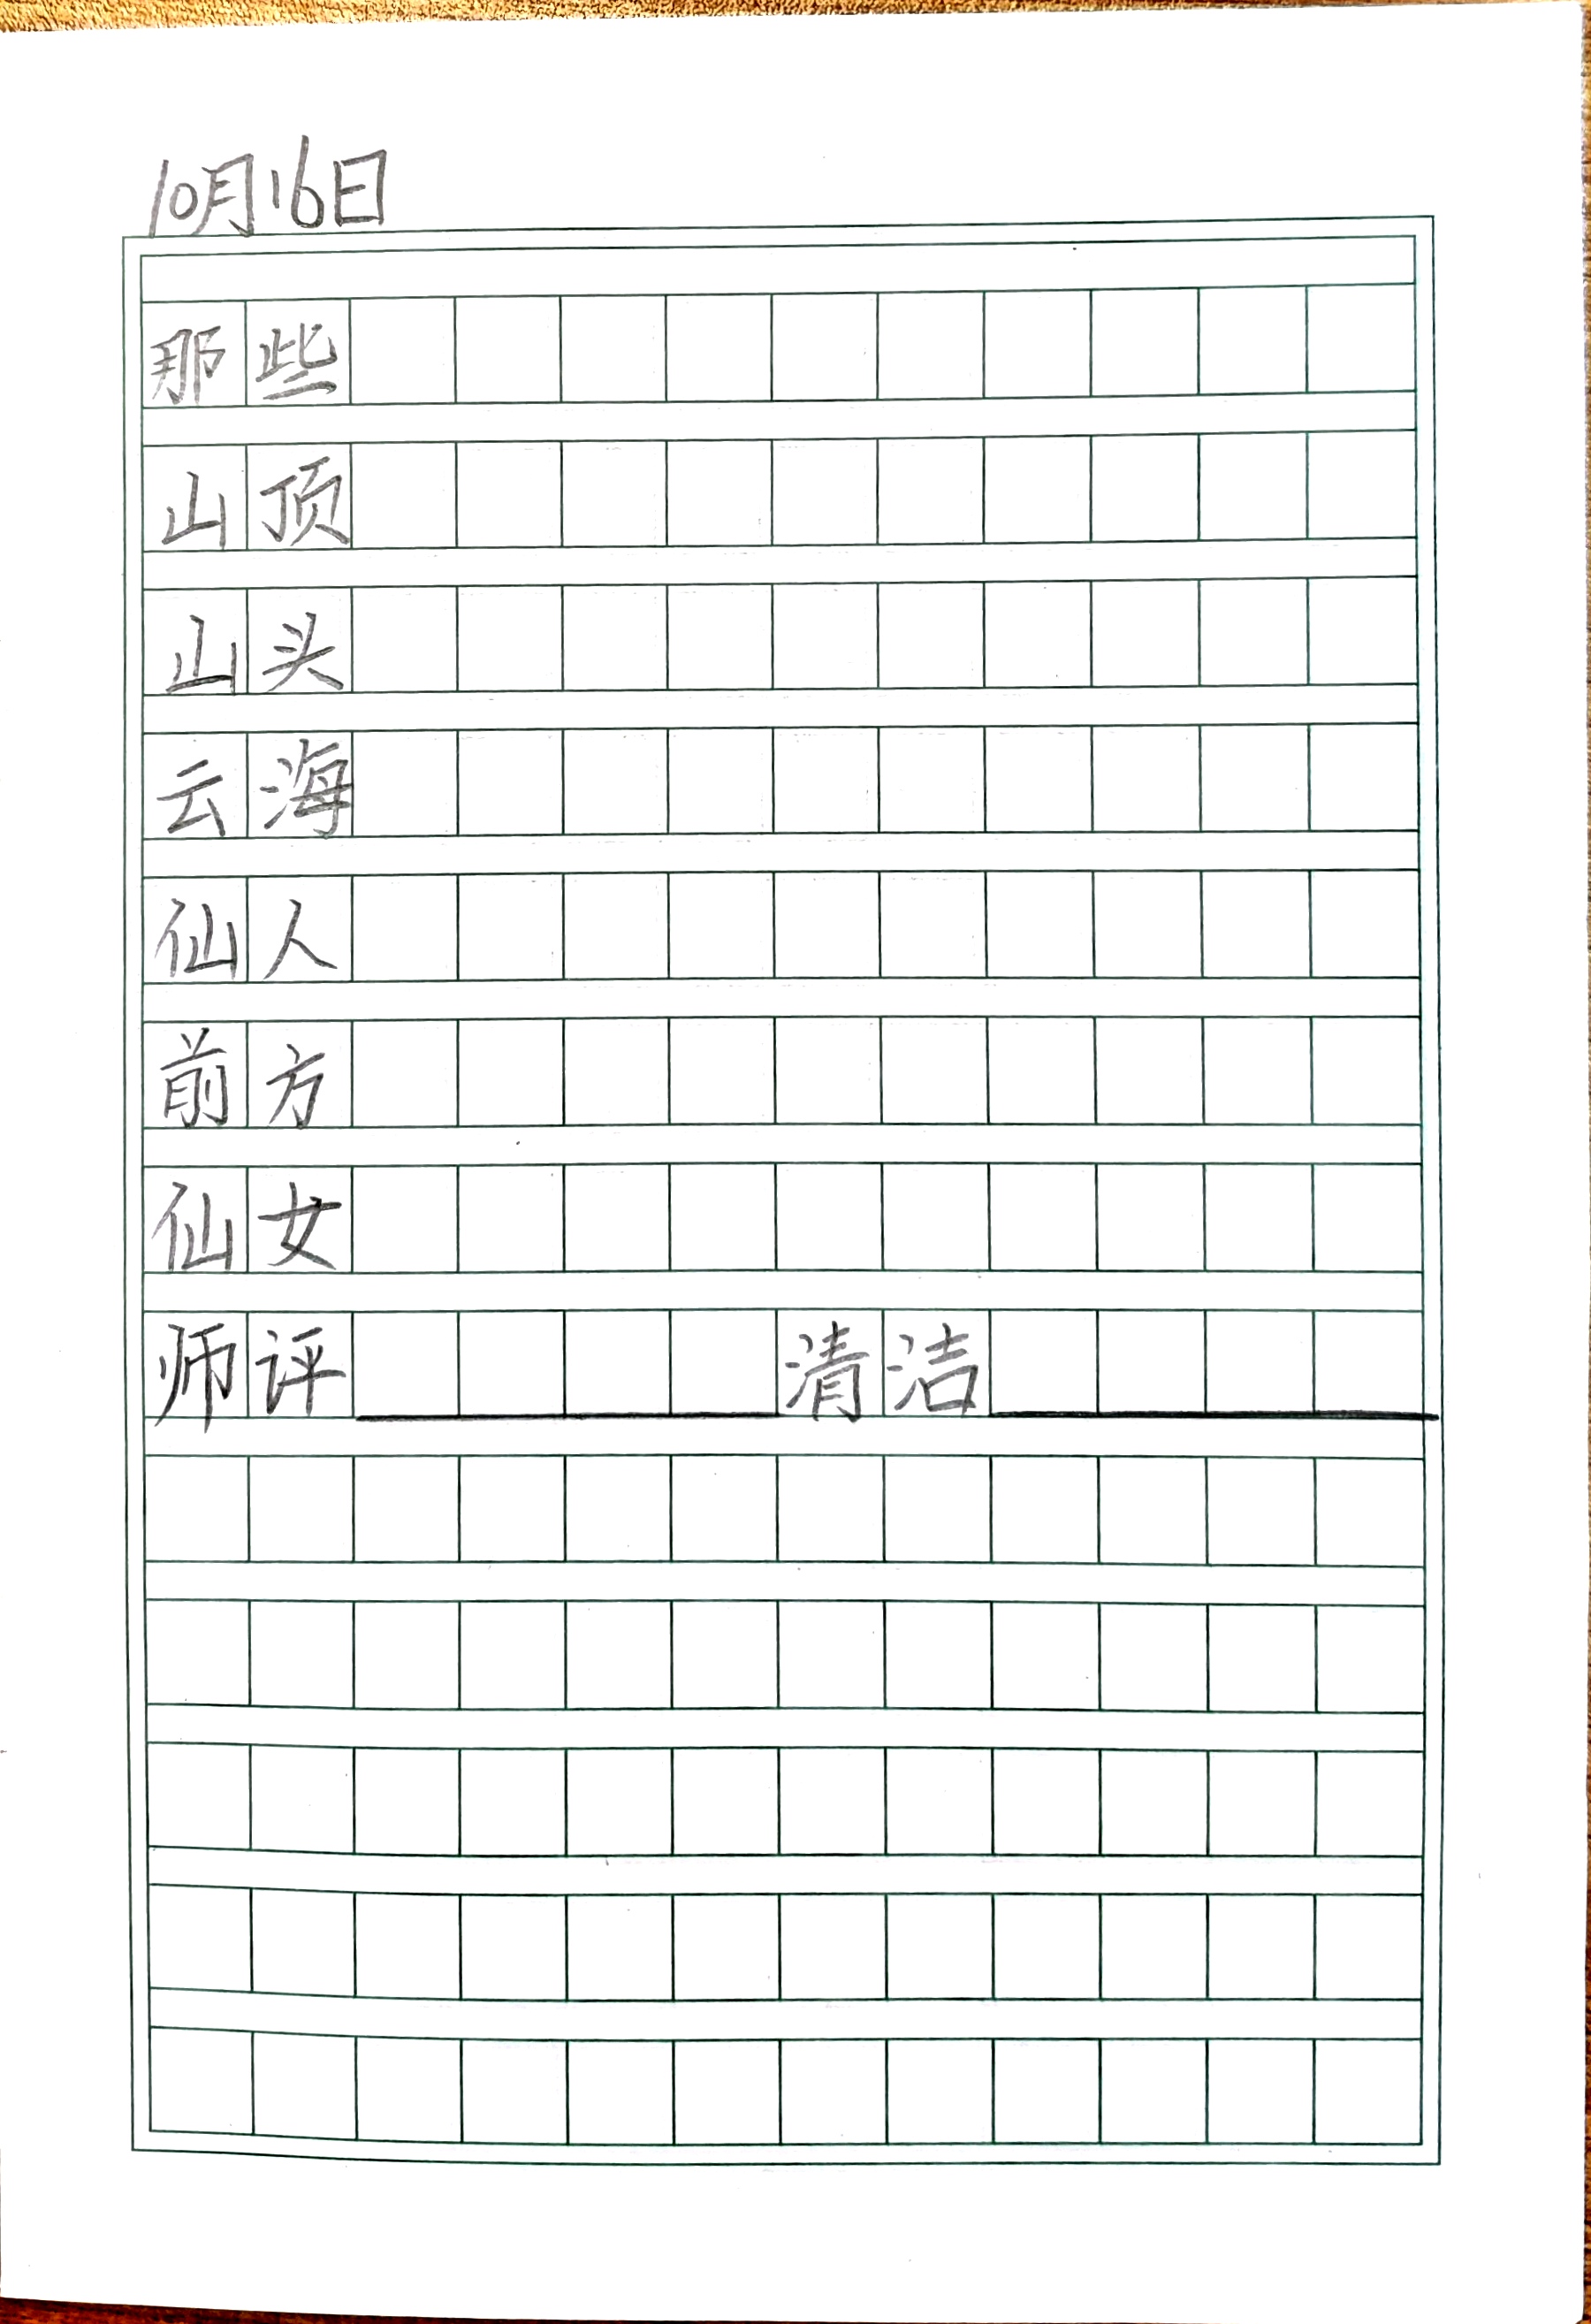 10月16日
那些
山顶
山头
云海
仙人
前方
仙女
师评 清洁